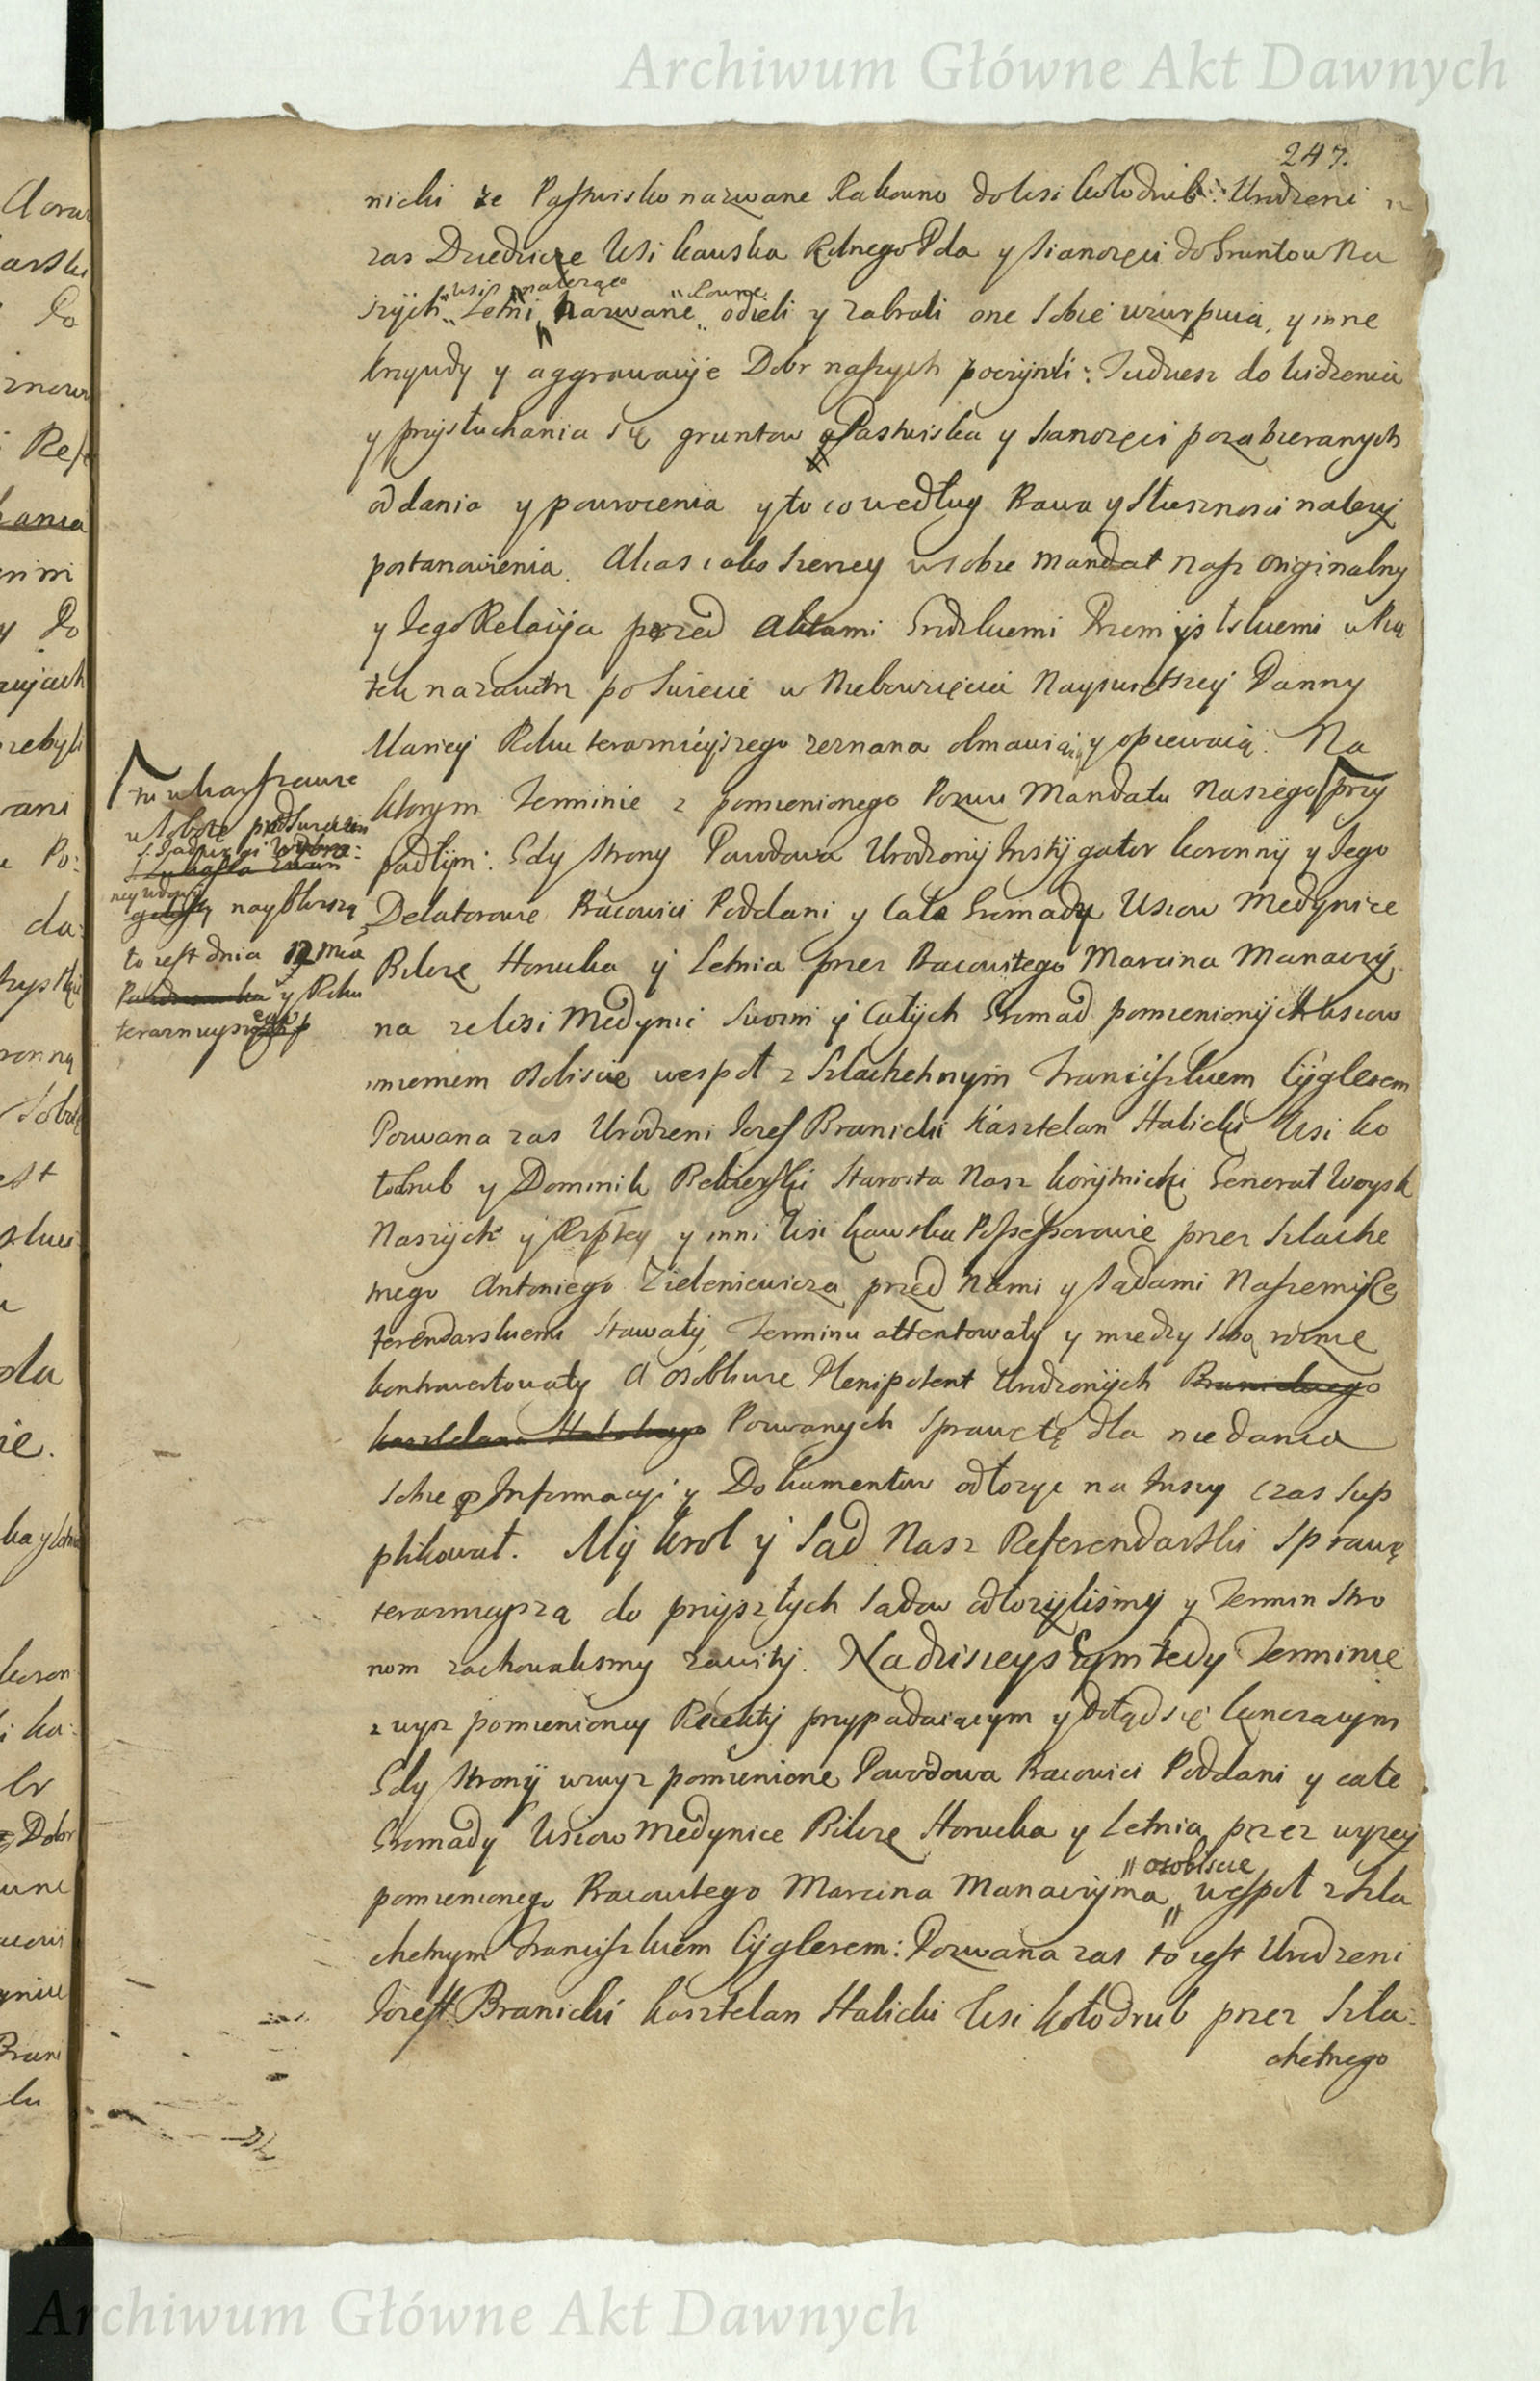 Archiwum Główne Akt Dawnych
247.
nicki że Pastwisko nazwane Rakowno do Wsi Kołodrub: Urodzeni
zas Dziedzice Wsi Kawska Rolnego Pola y Sianożęci do Gruntow Na
wsi należące
szych Letni nazwane odieli y zabrali one Sobie uzurpuią, y inne
krzywdy y aggrawacyje Dobr naszych poczynili: Tudziesz do widzenia
y przysłuchania Się gruntow y Pastwiska y Sianożęci pozabieranych
oddania y powrocenia y to co według Prawa y Słusznosci należy
postanowienia. Iako Szerzey w sobie Mandat Nasz Originalny
y Jego Relacyja przed Aktami Grodzkiemi Przemyslskiemi w Pią
tek nazaiutrz po Swięcie w Niebowzięcia Nayswiętszey Panny
Maryey Roku teraznieyszego zeznana obmawiaią y opiewaią. Na
ktorym Terminie z pomienionego Pozwu Mandatu Naszego przy
padłym: Gdy Strony Powodowa Urodzony Instygator Koronny y Jego
Delatorowie Pracowici Poddani y Cała Gromady Wsiow Medynice
Bilcze Horucka y Letnia przez Pracowitego Marcina Manaczy
na ze Wsi Medynic Swoim y Całych Gromad pomienionych Wsiow
imieniem osobiscie wespoł z Szlachetnym Franciszkiem Cyglerem
Pozwana zas Urodzeni Jozef Branicki Kasztelan Halicki Wsi Ko
łodrub y Dominik Starosta Nasz Korytnicki Generał Woysk
Naszych y Rzpltey y inni Wsi Kawska Possessorowie przez Szlache
tnego Antoniego Zieleniewicza przed Nami y Sądami Naszemi Re
ferendarskiemi Stawały, Terminu attentowały y między Sobą roznie
kontrowertowały A osobliwie Plenipotent Urodzonych Branickiego
Kasztelana Halickiego Pozwanych Sprawę tę dla niedania
Sobie Informacyi y Dokumentow odłożyc na inszy czas Sup
plikował. My Krol y Sąd Nasz Referendarski Sprawę
teraznieyszą do przyszłych Sądow odłożyliśmy y Termin Stro
nom zachowalismy zawity. Na dzisieyszym tedy Terminie
z wysz pomienioney Reiekty przypadaiącym y dotąd się konczącym
Gdy Strony wzwyz pomienione Powodowa Pracowici Poddani y całe
Gromady Wsiow Medynice Bilcze Horucka y Letnia przez wyzey
osobiscie
pomienionego Pracowitego Marcina Manaczyna wespoł z Szla
chetnym Franciszkiem Cyglerem: Pozwana zas to iest Urodzeni
Jozeff Branicki Kasztelan Halicki Wsi Kołodrub przez Szla:
chetnego
tu w Warszawie
w Sobotę po
nayblizszą
to iest dnia 12 Mca
y Roku
Archiwum Główne Akt Dawnych